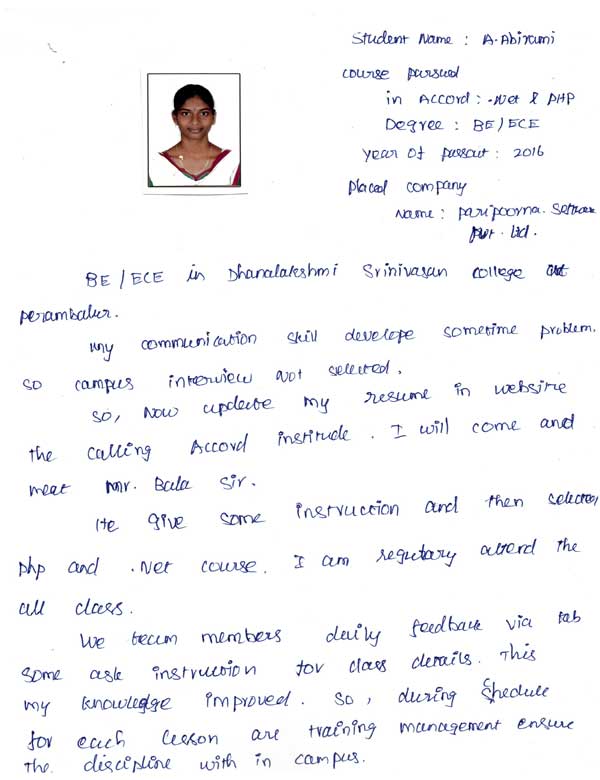 Student Name : A. Abirami
course pursued
in Accord : .Net & PHP
Degree : BE/ECE
Year of passout : 2016
placed company
Name : paripoorna.
pvt. Ltd.
BE/ECE in Dhanalakshmi Srinivasan college at
perambalur.
My communication skill develope sometime problem.
so campus interview Not selected.
so, Now update my resume in website
the calling Accord institude. I will come and
meet Mr. Bala Sir.
He give some instruction and then selected
php and .Net course. I am regulary attend the
all class.
We team members daily feedback via tab
some ask instruction for class details. This
my knowledge improved. so, during shedule
for each lesson are training management ensure
the discipline with in campus.